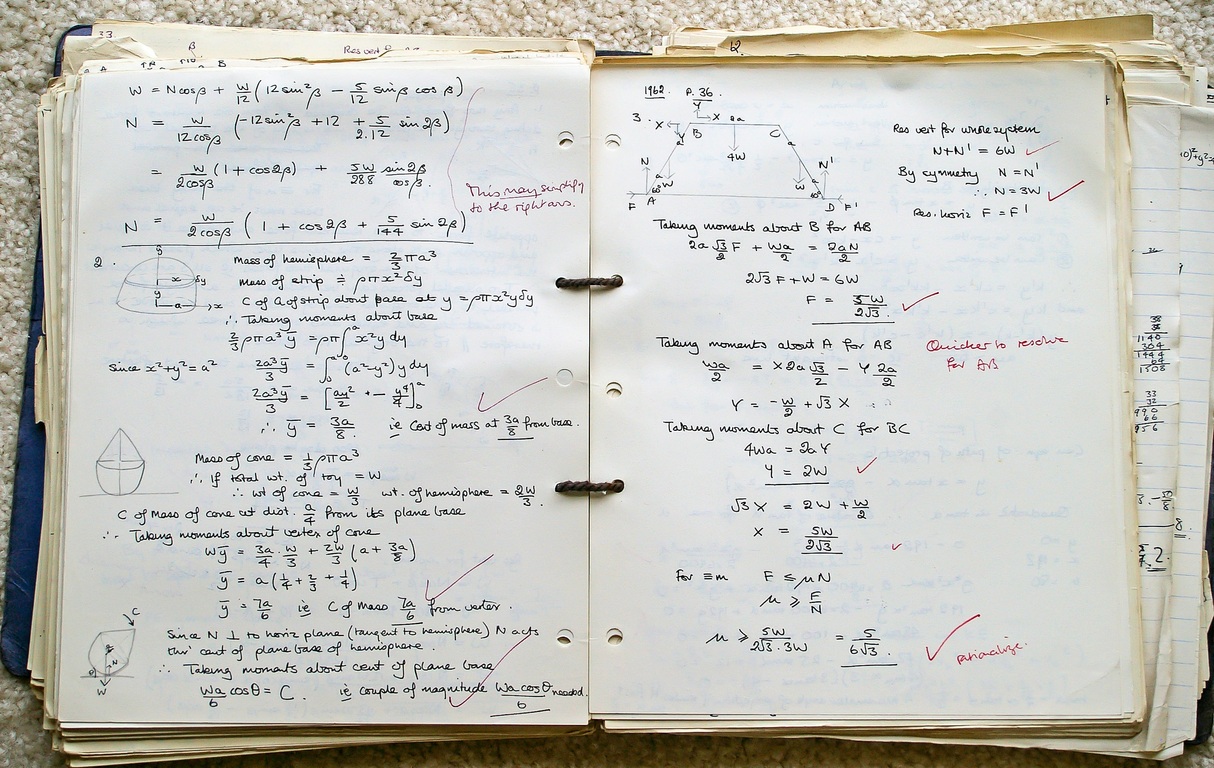 33
Res vert
β
W = N cos β + W/12 (12 sin²β − 5/12 sin β cos β)
N = W/12cosβ (−12 sin²β + 12 + 5/2.12 sin 2β)
= W/2cosβ (1 + cos 2β) + 5W/288 sin 2β/cos β.
This may simplify
to the right ans.
N = W/2cosβ (1 + cos 2β + 5/144 sin 2β)
2.
y
x
δy
y
a
x
Mass of hemisphere = 2/3 πa³
Mass of strip ≑ ρπx²δy
C of G of strip about base at y = ρπx²yδy
∴ Taking moments about base
2/3 ρπa³ȳ = ρπ∫₀ᵃ x²y dy
since x²+y²=a² 2a³ȳ/3 = ∫₀ᵃ (a²−y²)y dy
2a³ȳ/3 = [ay²/2 + − y⁴/4]₀ᵃ
∴ ȳ = 3a/8. ie Cent of mass at 3a/8 from base.
Mass of cone = 1/3 ρπa³
∴ If total wt. of toy = W
∴ wt of cone = W/3 wt. of hemisphere = 2W/3.
C of Mass of cone at dist. a/4 from its plane base
∴ Taking moments about vertex of cone
Wȳ = 3a/4 . W/3 + 2W/3 (a + 3a/8)
ȳ = a(1/4 + 2/3 + 1/4)
ȳ = 7a/6 ie C of Mass 7a/6 from vertex.
C
N
W
Since N ⊥ to horiz plane (tangent to hemisphere) N acts
thro' cent of plane base of hemisphere.
∴ Taking moments about cent of plane base
Wa/6 cos θ = C. ie couple of magnitude Wa cos θ/6 needed.
62.
1962. P. 36.
3.
Y
X
X
2a
Y
B
C
a
a
4W
N
N'
a
W
W
a
60°
60°
F
A
D
F'
Res vert for whole system
N + N' = 6W
By symmetry N = N'
∴ N = 3W
Res. horiz F = F'
Taking moments about B for AB
2a √3/2 F + Wa/2 = 2aN/2
2√3 F + W = 6W
F = 5W/2√3.
Taking moments about A for AB
Quicker to resolve
for AB
Wa/2 = X 2a √3/2 − Y 2a/2
Y = −W/2 + √3 X
Taking moments about C for BC
4Wa = 2a Y
Y = 2W
√3 X = 2W + W/2
X = 5W/2√3
For ≡m F ≤ μN
μ ≥ F/N
μ ≥ 5W/2√3.3W = 5/6√3.
rationalize.
38
38
1140
304
1444
64
1508
33